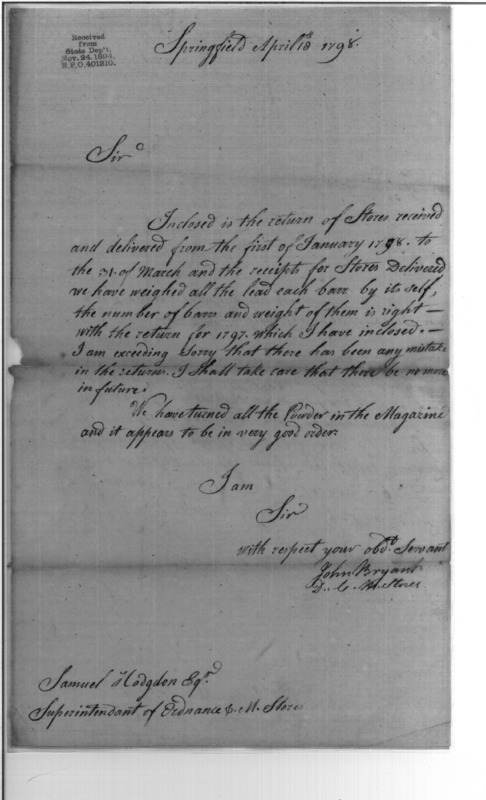 Received
from
State Dep't.
Nov. 24. 1894,
R.P.O. 401310.
Springfield April 18th 1798.
Sir
Inclosed is the return of Stores received
and delivered from the first of January 1798. to
the 31. of March and the receipts for Stores Delivered
we have weighed all the lead each barr by its self,
the number of barrs and weight of them is right—
with the return for 1797. which I have inclosed.—
I am exceding Sorry that there has been any mistake
in the return. I Shall take care that there be no more
in future.
We have turned all the Powder in the Magazine
and it appears to be in very good order.
I am
Sir
with respect your obdt. Servant
John Bryant
D. C. M. Stores
Samuel Hodgdon Esqr.
Superintendant of Ordnance & M. Stores